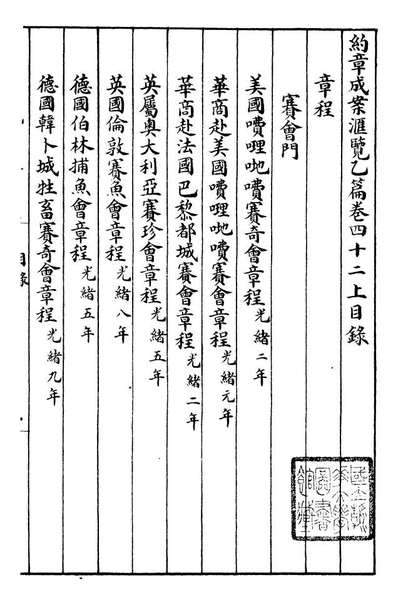 約章成案滙覽乙篇卷四十二上目錄
章程
賽會門
美國嘪哩地嘪賽奇會章程光緒二年
華商赴美國嘪哩地嘪賽會章程光緒元年
華商赴法國巴黎都城賽會章程光緒二年
英屬奧大利亞賽珍會章程光緒五年
英國倫敦賽魚會章程光緒八年
德國伯林捕魚會章程光緒五年
德國韓卜城牲畜賽奇會章程光緒九年
目錄